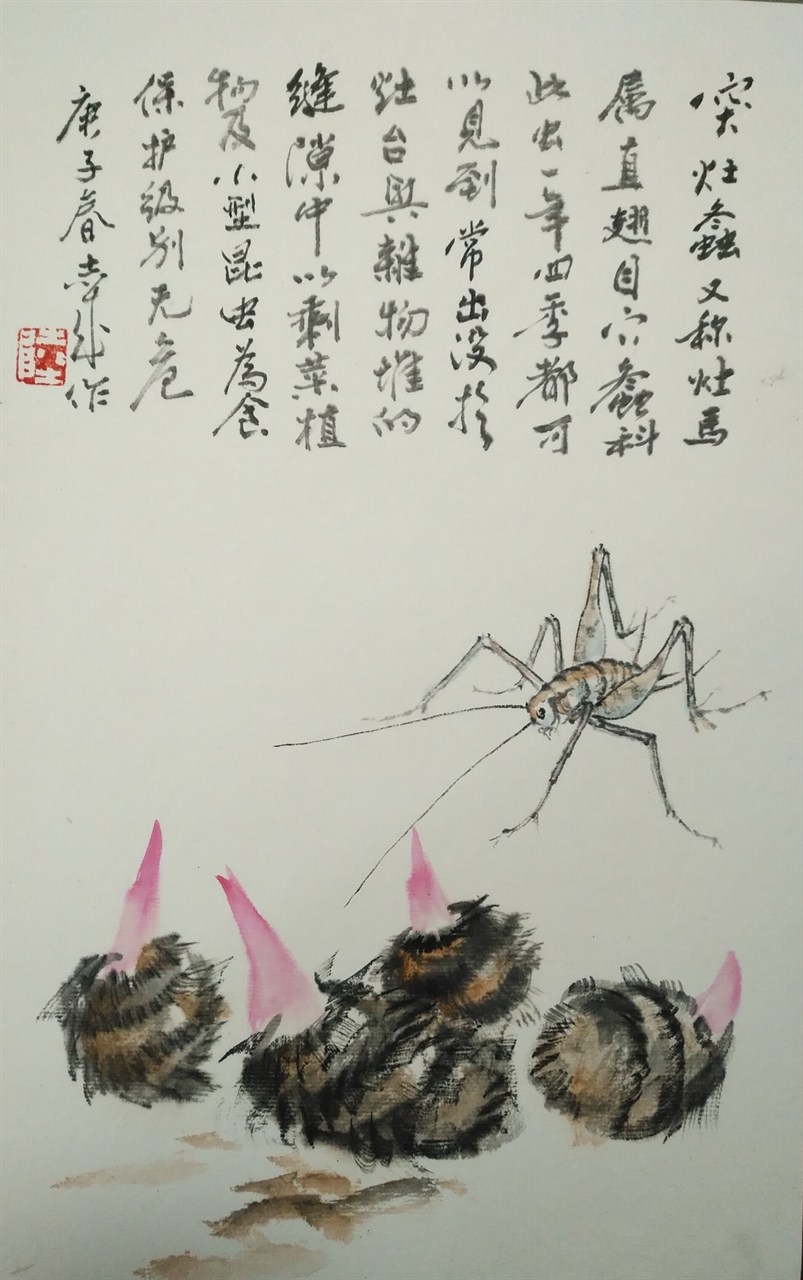 突灶螽又称灶马
属直翅目穴螽科
此虫一年四季都可
以见到常出没於
灶台與雜物堆的
縫隙中以剩菜植
物及小型昆虫為食
保护级别无危
庚子春幸成作